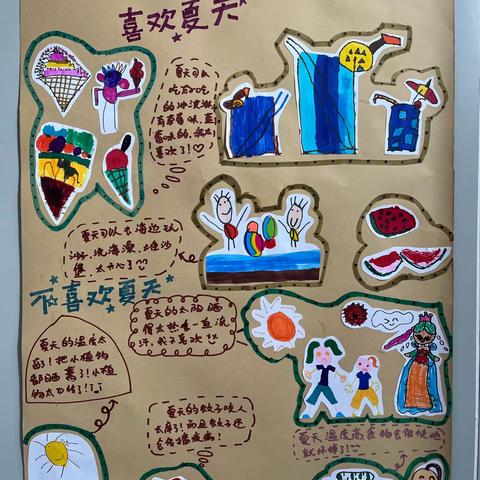 喜欢夏天
夏天可以
吃好吃
的冰淇淋
有草莓味,蓝
莓味的,我太
喜欢了!
夏天可以去海边玩
沙子,洗海澡,堆沙
堡,太开心了
不喜欢夏天
夏天的太阳晒
得太热了一直流
汗,我不喜欢
夏天的温度太
高了!把小植物
都晒蔫了!小植
物太可怜了!
夏天的蚊子咬人
太痒了!而且蚊子还
会传播疾病!
夏天温度高食物会很快地
就坏掉了!